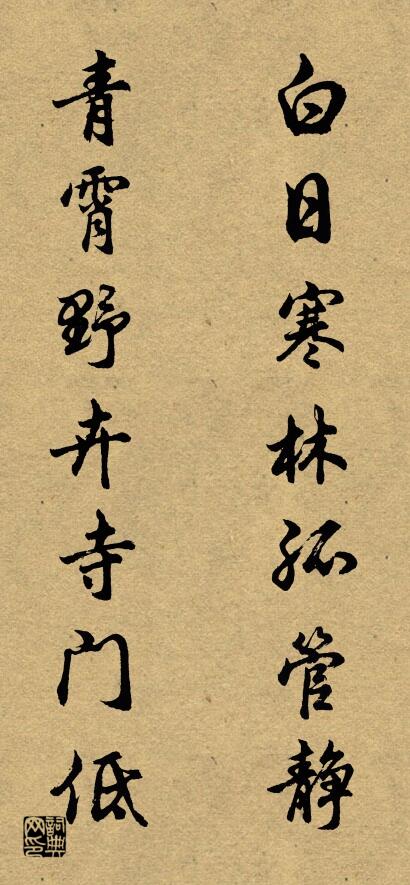 白日寒林孤管静
青霄野卉寺门低
詞典
网印